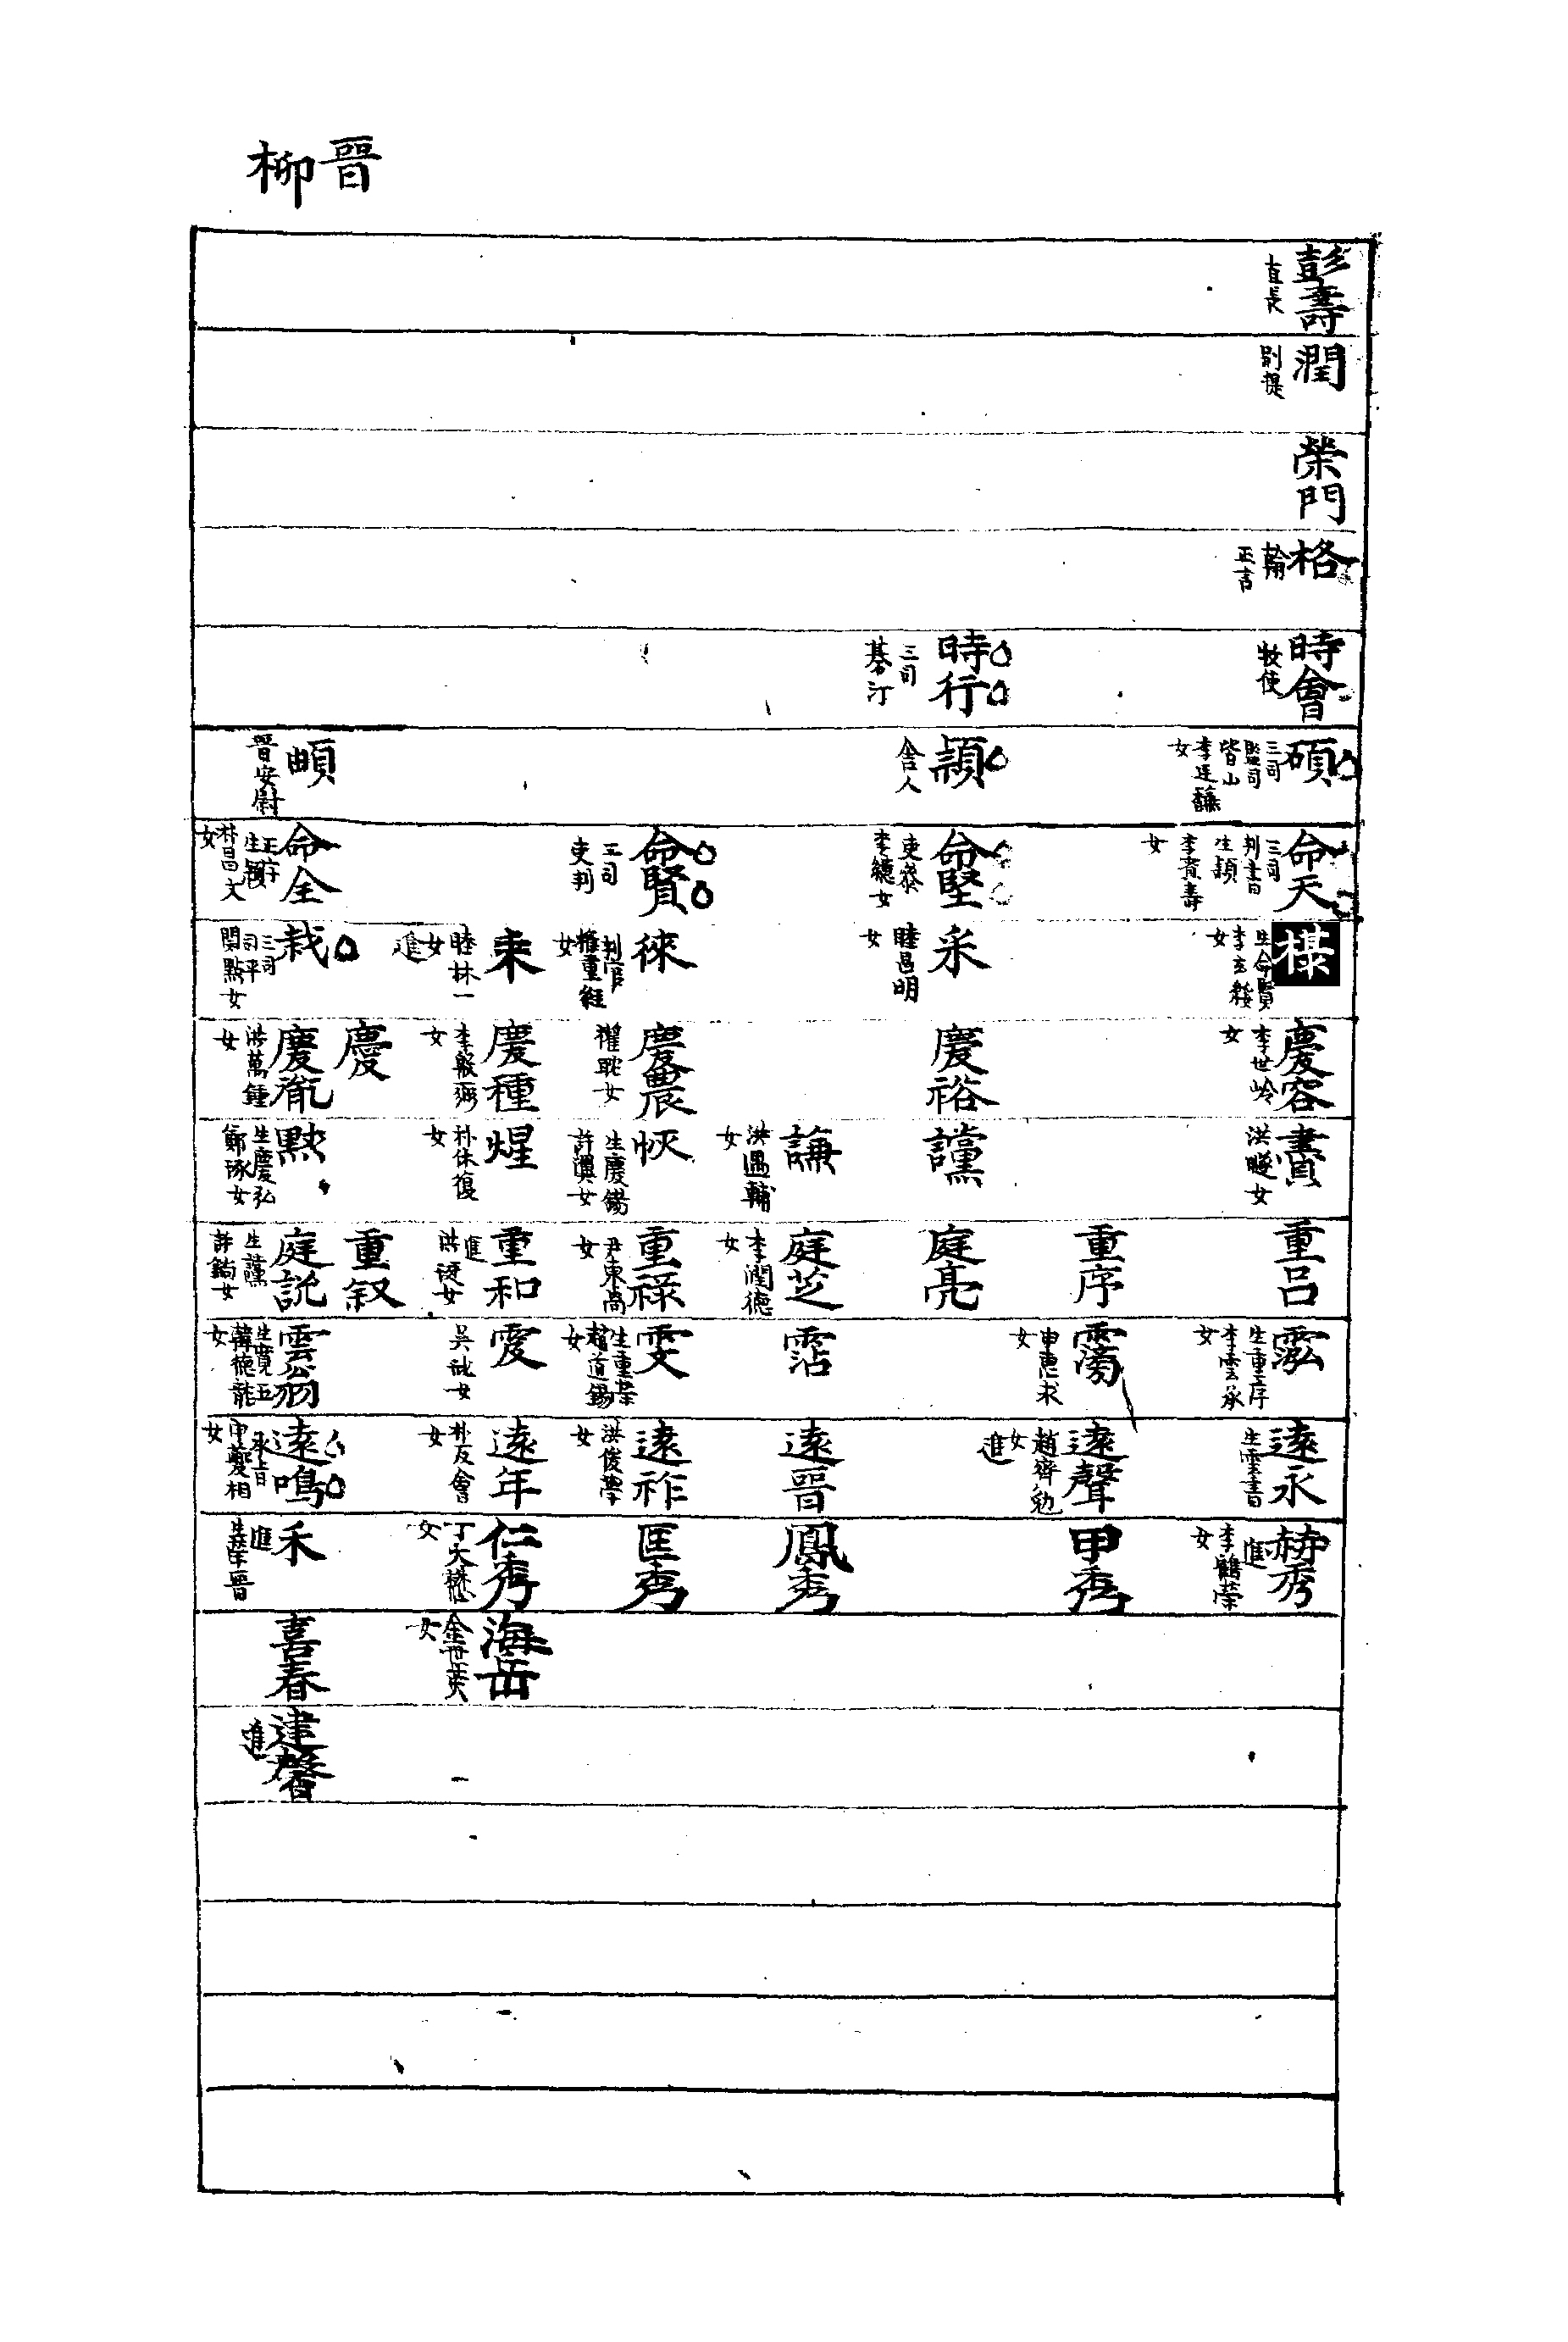 晋柳
彭壽 直長
潤 別提
榮門
格 翰 正言
時會 牧使
時行 三司 碁汀
碩 三司 監司 皆山 李廷馦 女
頴 舍人
頔 晋安尉
命天 三司 判書 生頴 李齊壽 女
命堅 吏參 李德女
命賢 三司 吏判
命全 正字 朴昌文 女
生命賢 李玄 女
采 睦昌明 女
徠 判官 權重經 女
来 睦林一 女 進
栽 三司 司平 閔點女
慶容 李世岭 女
慶裕
慶農 權耽女
慶種 李般弼 女
慶
慶胤 洪萬鍾 女
賮 洪曒女
讜
謙 洪遇輔 女
恢 生慶錫 許澳女
煋 朴休復 女
默 生慶弘 鄭琢女
重呂
重序
庭亮
庭芝 李潤德 女
重祿 尹東卨 女
重和 進 洪女
重叙
庭說 生讜 許鏛女
生重序 李雲承 女
申惠求 女
霑
雯 生重榮 趙道錫 女
愛 吳女
雲翁 生寬五 韓德龍 女
遠永 生雲書
遠聲 趙齊勉 女 進
遠晋
遠祚 洪俊學 女
遠年 朴友會 女
遠鳴 承旨 申慶相 女
赫秀 進 李鶴榮 女
甲秀
鳳秀
匡秀
仁秀 丁大懋 女
禾 進 生華晋
海岳 金世英 女
喜春
建馨 進